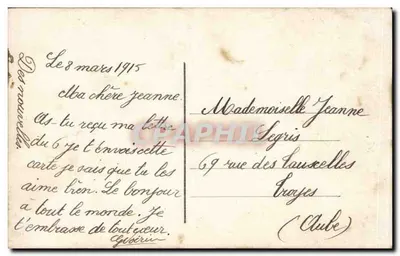 Des nouvelles
Le 8 mars 1915
Ma chère Jeanne.
As tu reçu ma lettre
du 6 je t'envois cette
carte je sais que tu les
aime bien. Le bonjour
à tout le monde. Je
t'embrasse de tout cœur.
Mademoiselle Jeanne
Legris
69 rue des
Troyes
(Aube)